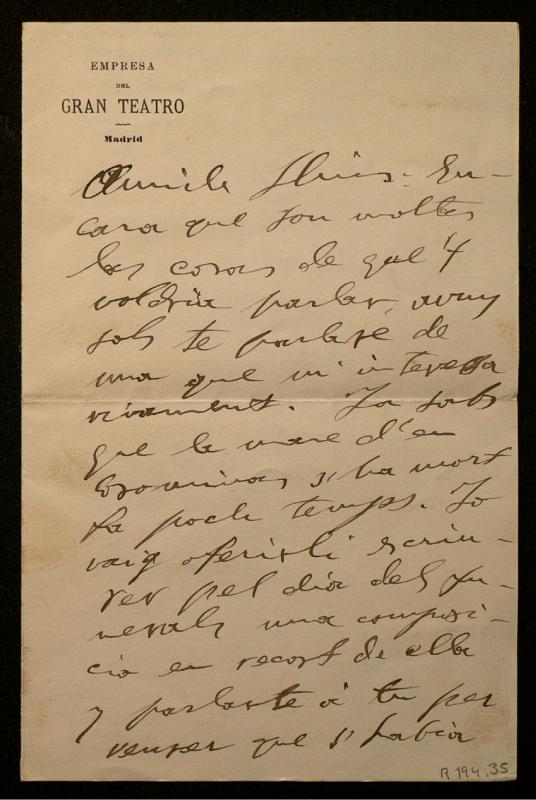 EMPRESA
DEL
GRAN TEATRO
Madrid
Amich Lluis: En-
cara que son moltas
las cosas de que t'
voldria parlar, avuy
sols te parlaré de
una que m'interessa
vivament. Ja sabs
que la mare d'en
s'ha mort
fa poch temps. Jo
vaig oferirli escriu-
rer pel dia dels fu-
nerals una composi-
ció en recort de ella
y parlarte á tu per
veurer que s'habia
R 194.35